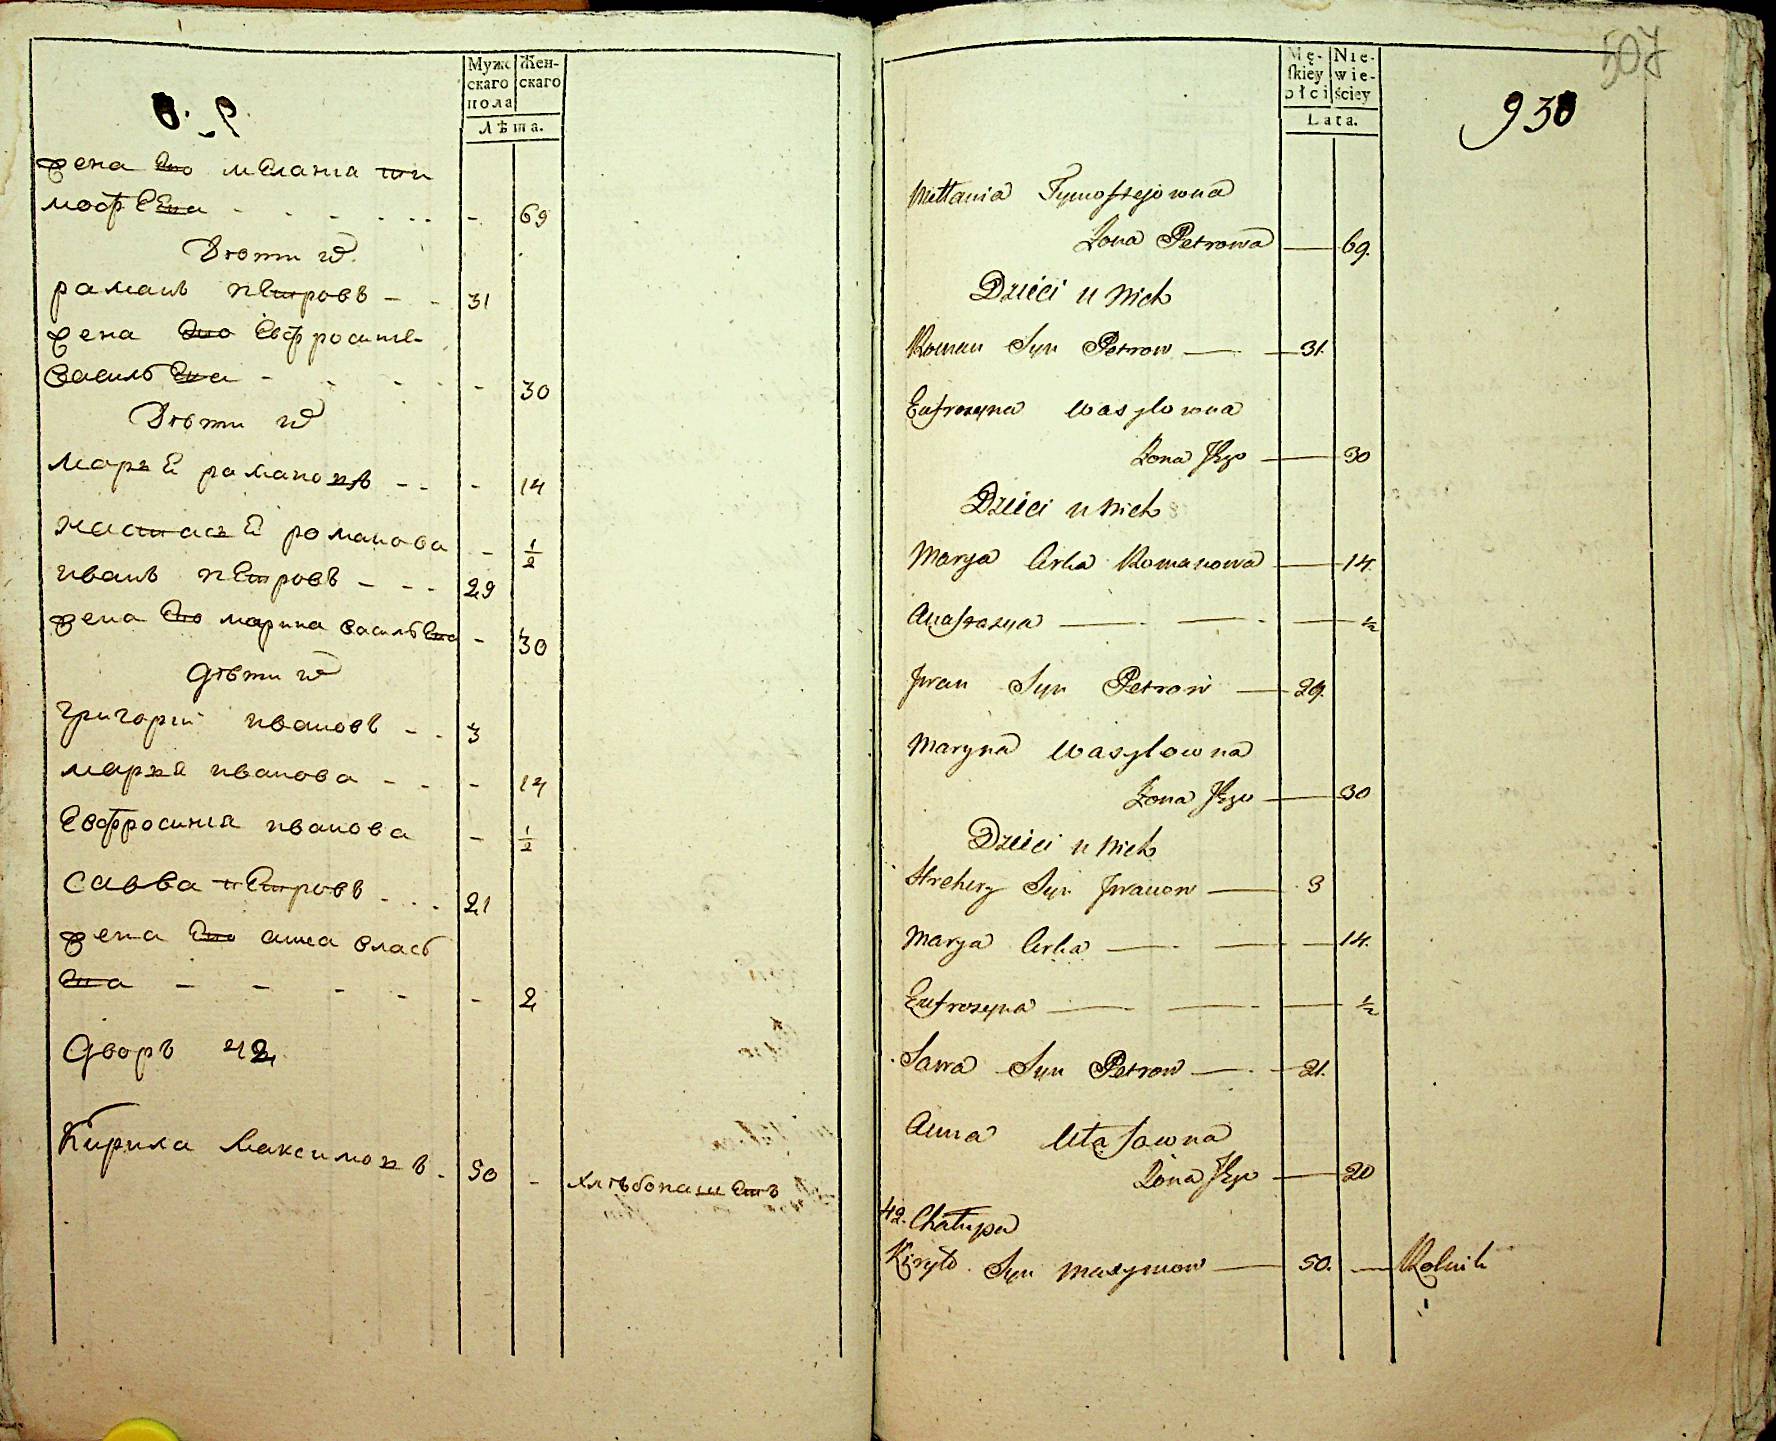 Мужс Жен-
скаго скаго
пола
Лѣта.
жена Его мЕланиа ти
мофЕЕва - - - - - 69
Дѣти их
раманъ пЕтровъ - - 31
жена Его Евфросине
васильЕва - - - - - 30
Дѣти их
марьЕ романовъ - - - 14
настасьЕ романова - 1/2
иванъ пЕтровъ - - - 29
жена Его марина васильЕва - 30
дѣти их
григорій ивановъ - - 3
марья иванова - - - 14
Евфросиния иванова - 1/2
савва пЕтровъ - - - 21
жена Его анна влась
Ева - - - - - 2
Дворъ 42
Кирила Максимовъ - 50 - хлѣбопашЕцъ
507
Mę- Nie-
skiey wie-
płci ściey
Lata.
930
Mełania Tymofiejowna
Żona Petrowa — 69.
Dzieci u Nich
Roman Syn Petrow — — 31.
Eufrozyna Wasylowna
Żona Jego — 30
Dzieci u Nich
Marya Crka Romanowa — 14.
Anastazya — — — 1/2
Jwan Syn Petrow — 29.
Maryna Wasylowna
Żona Jego — 30
Dzieci u Nich
Hrehory Syn Jwanow — 3
Marya Crka — — — 14.
Eufrozyna — — — 1/2
Sawa Syn Petrow — — 21.
Anna Ułasowna
Żona Jego — 20
42. Chałupa
Kiryło Syn Maxymow — 50. — Rolnik